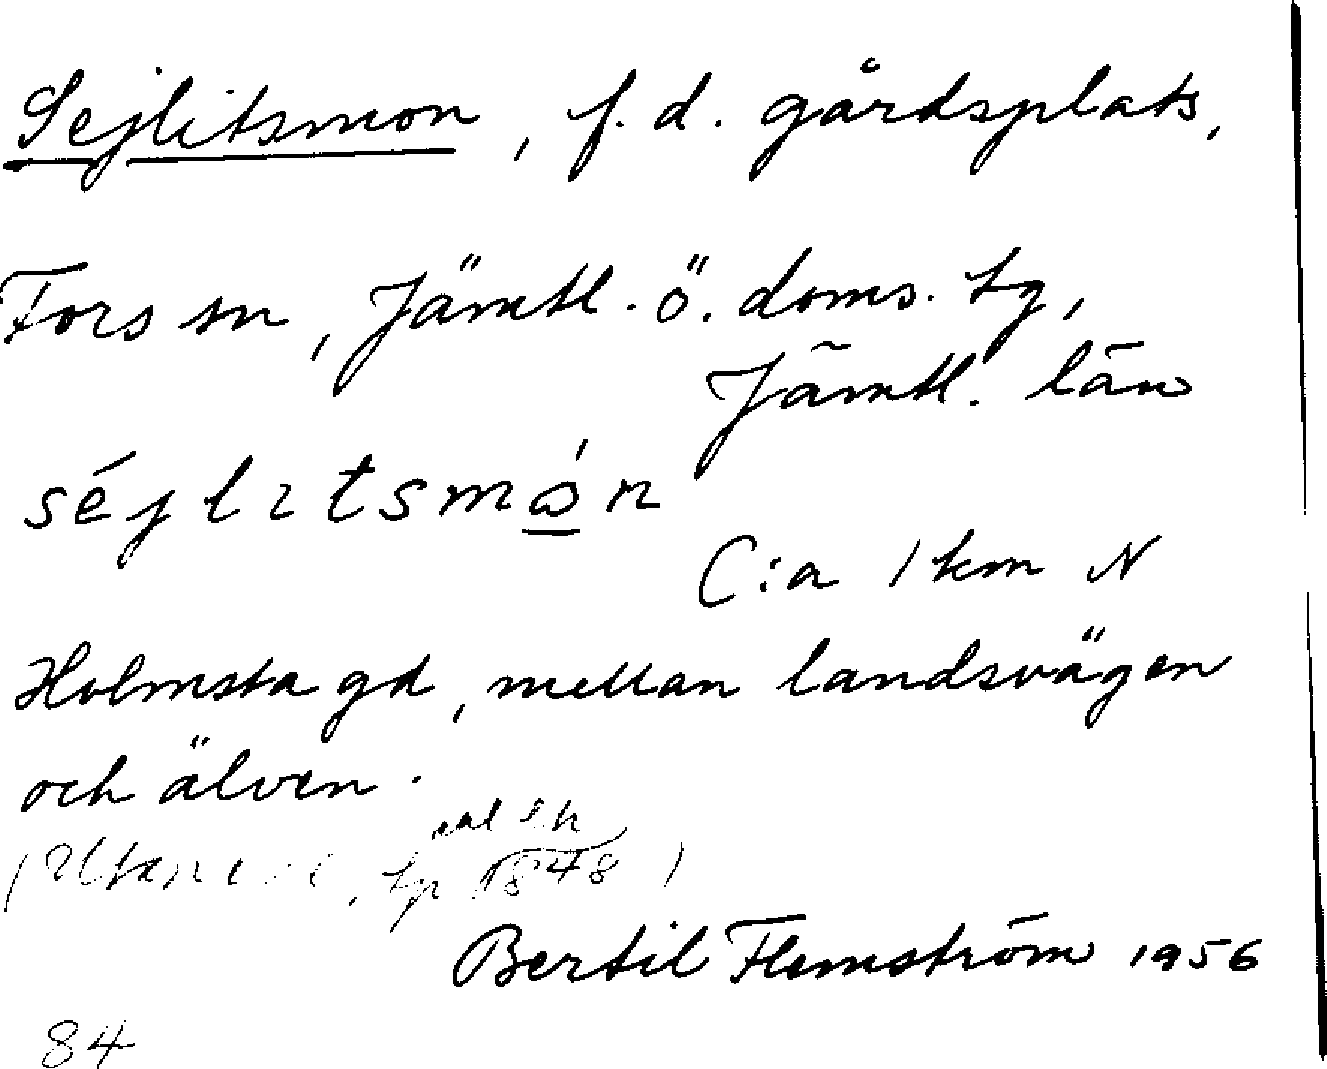 Sejlitsmon, f.d. gårdsplats,
Fors sn, Jämtl. ö. doms. tg,
Jämtl. län
séjlıtsmǫ́n
C:a 1 km N
Holmsta gd, mellan landsvägen
och älven.
1848)
Bertil Flemström 1956
84